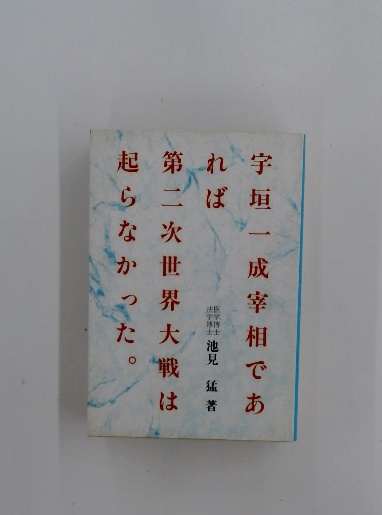 宇垣一成宰相であ
れば
第二次世界大戦は
起らなかった。
医学博士
法学博士
池見 猛 著